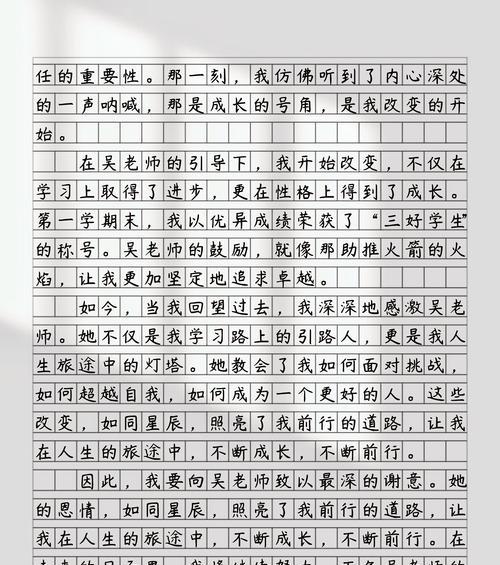 任的重要性。那一刻，我仿佛听到了内心深处
的一声呐喊，那是成长的号角，是我改变的开
始。
在吴老师的引导下，我开始改变，不仅在
学习上取得了进步，更在性格上得到了成长。
第一学期末，我以优异成绩荣获了“三好学生”
的称号。吴老师的鼓励，就像那助推火箭的火
焰，让我更加坚定地追求卓越。
如今，当我回望过去，我深深地感激吴老
师。她不仅是我学习路上的引路人，更是我人
生旅途中的灯塔。她教会了我如何面对挑战，
如何超越自我，如何成为一个更好的人。这些
改变，如同星辰，照亮了我前行的道路，让我
在人生的旅途中，不断成长，不断前行。
因此，我要向吴老师致以最深的谢意。她
的恩情，如同星辰，照亮了我前行的道路，让
我在人生的旅途中，不断成长，不断前行。在